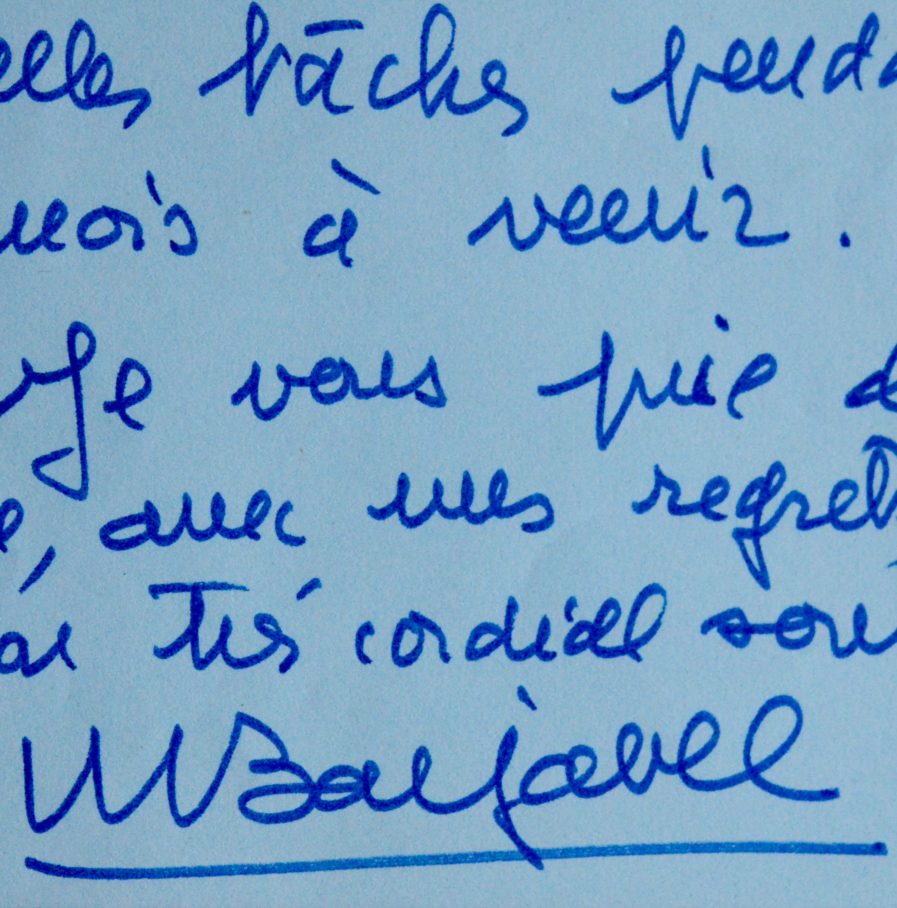 elles tâches penda
mois à venir.
Je vous prie d
e, avec mes regrets
très cordial souv
Barjavel